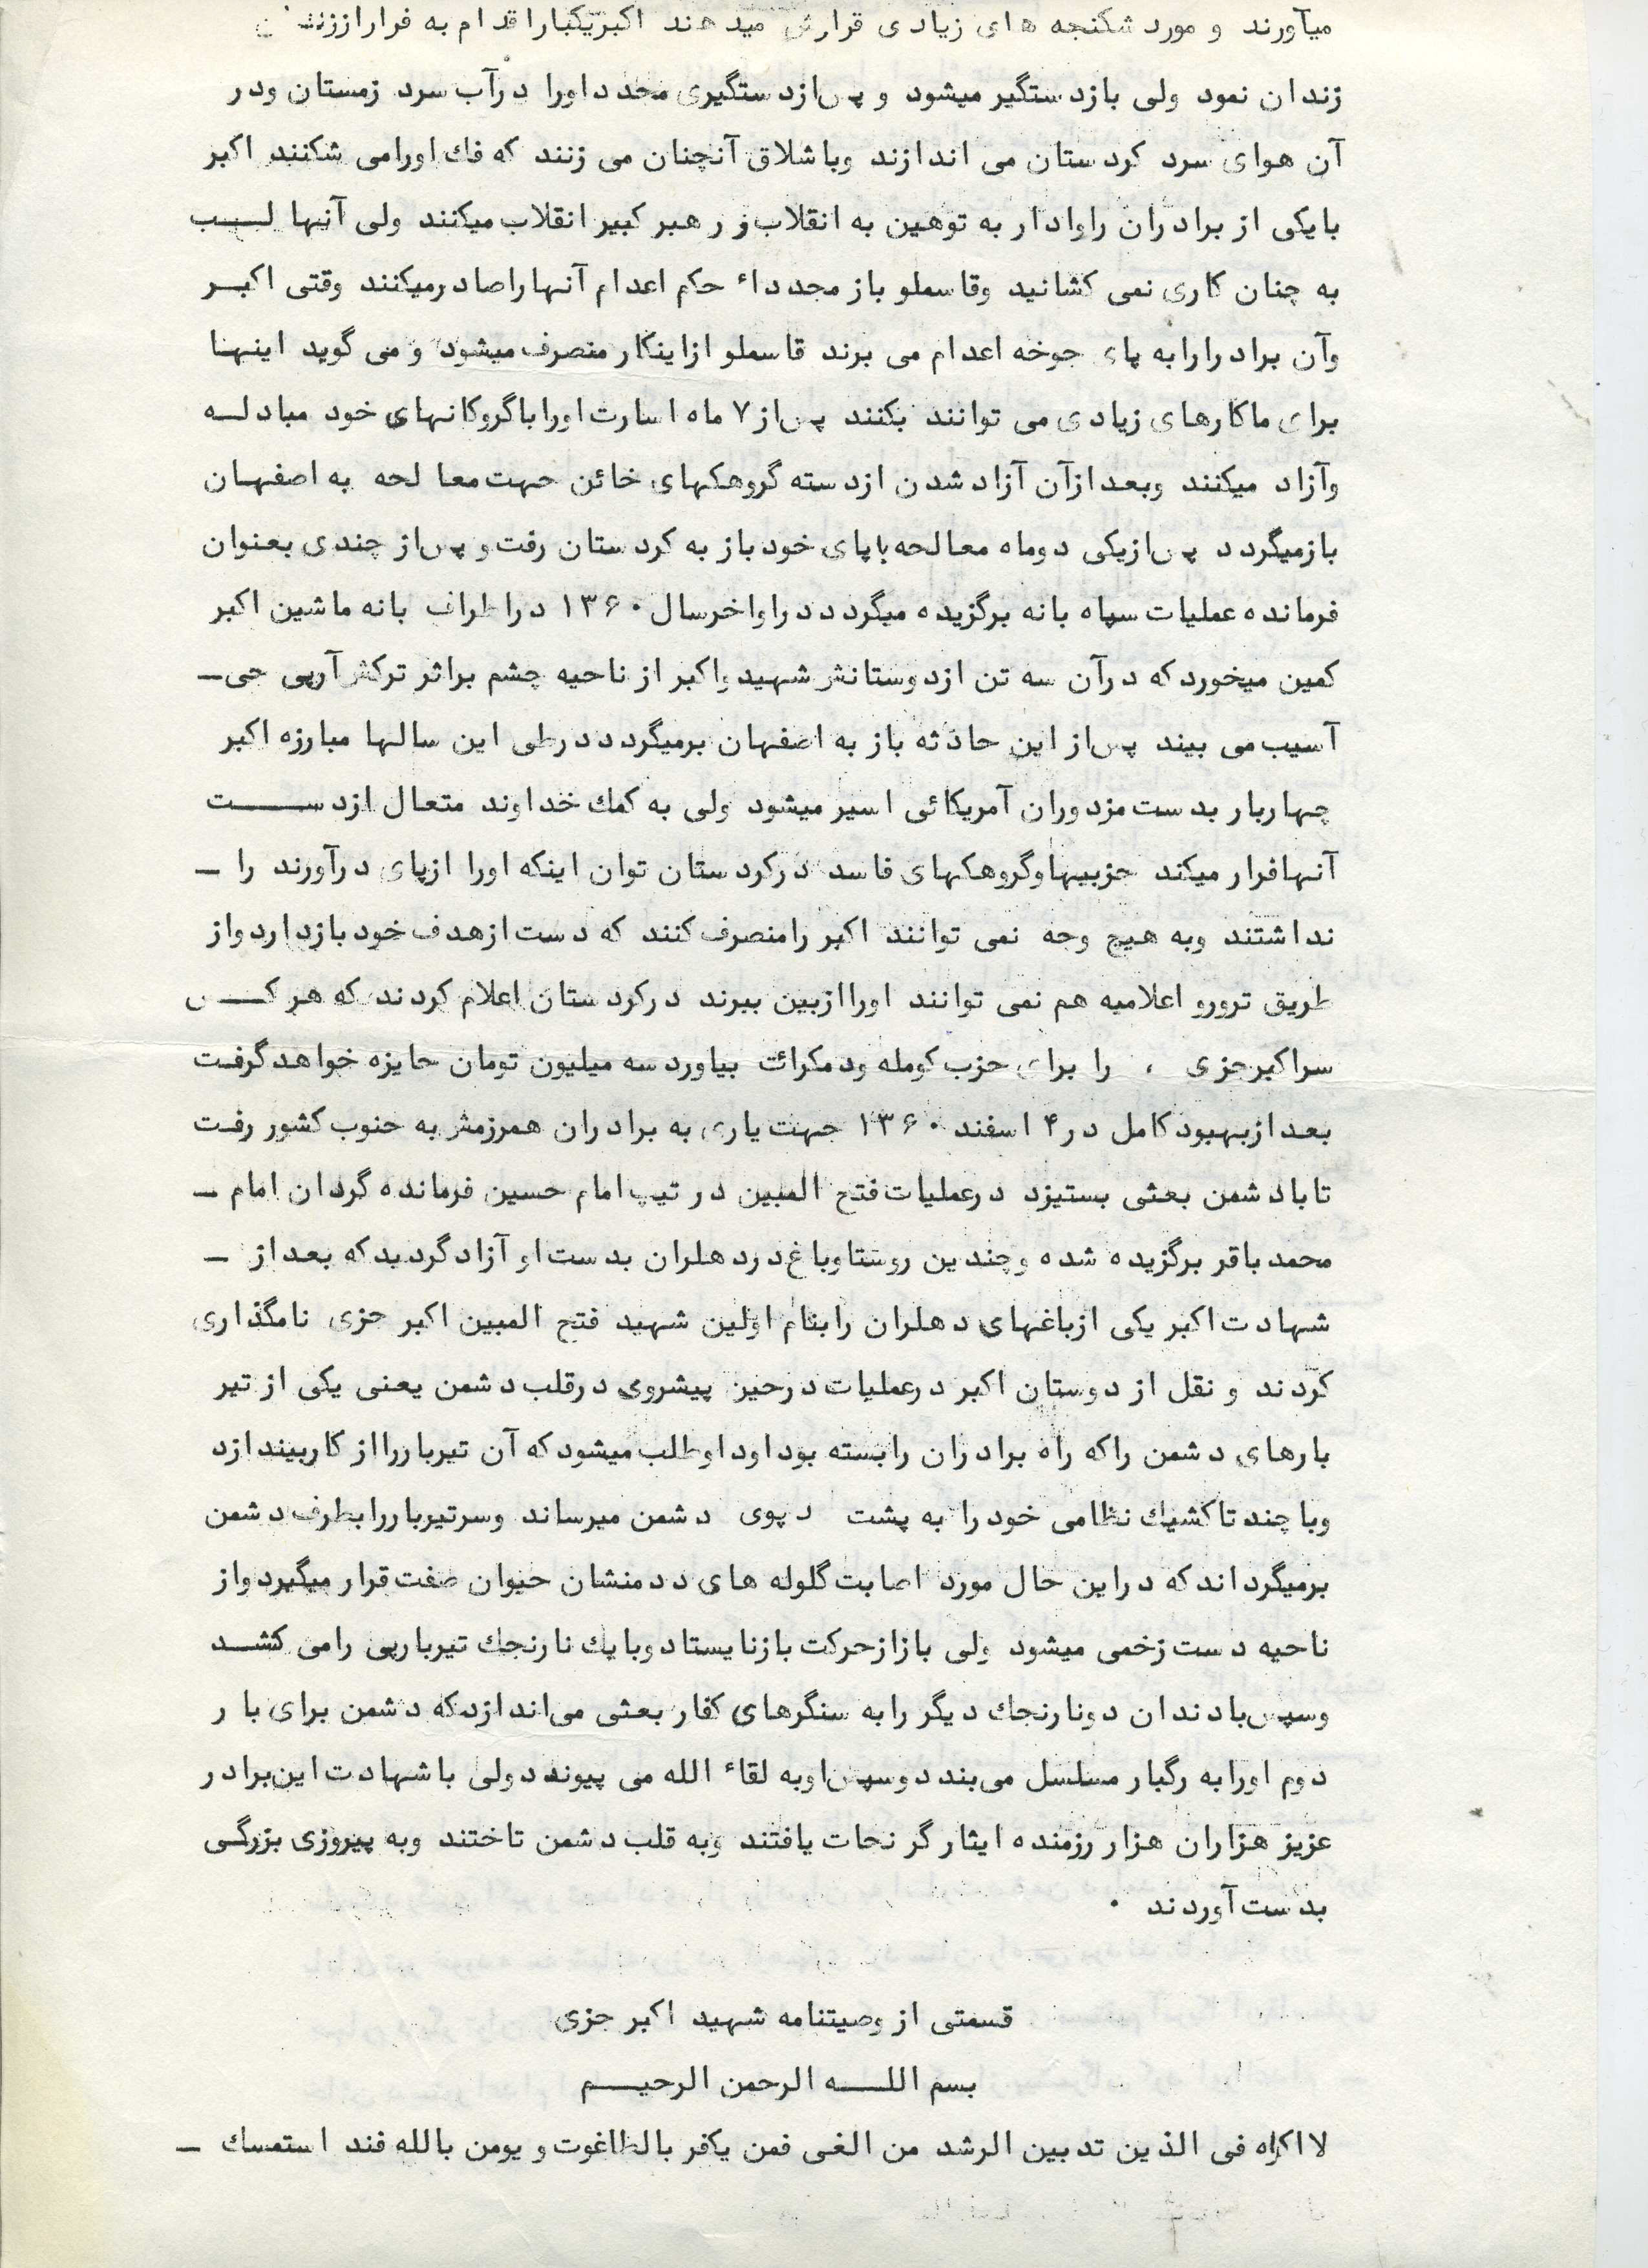 میآورند و مورد شکنجه های زیادی قرارش میدهند اکبر یکبار اقدام به فرار از
زندان نمود ولی باز دستگیر میشود و پس از دستگیری مجدد اورا درآب سرد زمستان ودر
آن هوای سرد کردستان می اندازند وباشلاق آنچنان می زنند که فك اورامی شکنند اکبر
بایکی از برادران راوادار به توهین به انقلاب و رهبر کبیر انقلاب میکنند ولی آنها لب
به چنان کاری نمی کشانید وقاسملو باز مجدداء حکم اعدام آنهاراصادرمیکنند وقتی اکبر
وآن برادررابه پای جوخه اعدام می برند قاسملو ازاینکار منصرف میشود و می گوید اینها
برای ماکارهای زیادی می توانند بکنند پس از ۷ ماه اسارت اوراباگروکانهای خود مبادله
وآزاد میکنند وبعد ازآن آزاد شدن ازدسته گروهکهای خائن جهت معالجه به اصفهان
بازمیگردد پس ازیکی دوماه معالجه باپای خود باز به کردستان رفت و پس از چندی بعنوان
فرمانده عملیات سپاه بانه برگزیده میگردد دراواخرسال ۱۳۶۰ دراطراف بانه ماشین اکبر
کمین میخورد که درآن سه تن ازدوستانش شهید واکبر از ناحیه چشم براثر ترکش آرپی جی ـ
آسیب می بیند پس از این حادثه باز به اصفهان برمیگردد درطی این سالها مبارزه اکبر
چهاربار بدست مزدوران آمریکائی اسیر میشود ولی به کمك خداوند متعال ازدست
آنهافرار میکند حزبیهاوگروهکهای فاسد درکردستان توان اینکه اورا ازپای درآورند را ـ
نداشتند وبه هیچ وجه نمی توانند اکبر رامنصرف کنند که دست ازهدف خود بازدارد واز
طریق ترورو اعلامیه هم نمی توانند اوراازبین ببرند درکردستان اعلام کردند که هر کس
سراکبرجزی ، را برای حزب کومله ودمکرائت بیاورد سه میلیون تومان جایزه خواهد گرفت
بعد ازبهبود کامل در ۴ اسفند ۱۳۶۰ جهت یاری به برادران همرزمش به جنوب کشور رفت
تاباد شمن بعثی بستیزد درعملیات فتح المبین در تیپ امام حسین فرمانده گردان امام ـ
محمد باقر برگزیده شده وچندین روستاوباغ دردهلران بدست او آزاد گردید که بعد از ـ
شهادت اکبر یکی ازباغهای دهلران رابنام اولین شهید فتح المبین اکبر جزی نامگذاری
کردند و نقل از دوستان اکبر درعملیات درحین پیشروی درقلب دشمن یعنی یکی از تیر
بارهای دشمن راکه راه برادران رابسته بود اوداوطلب میشود که آن تیربارراازکاربیندازد
وباچند تاکتیك نظامی خود را به پشت دپوی دشمن میرساند وسرتیرباررابطرف دشمن
برمیگرداند که دراین حال مورد اصابت گلوله های ددمنشان حیوان صفت قرار میگیرد واز
ناحیه دست زخمی میشود ولی بازازحرکت بازنایستاد وبایك نارنجك تیرباریی رامی کشد
وسپس بادندان دونارنجك دیگر رابه سنگرهای کفار بعثی می اندازد که دشمن برای بار
دوم اورابه رگبار مسلسل می بندد وسپس اوبه لقاء الله می پیوندد ولی باشهادت این برادر
عزیز هزاران هزار رزمنده ایثارگر نجات یافتند وبه قلب دشمن تاختند وبه پیروزی بزرگی
بدست آوردند .
قسمتی از وصیتنامه شهید اکبر جزی
بسم اللـه الرحمن الرحیـم
لااکراه فی الذین تدبین الرشد من الغی فمن یکفر بالطاغوت و یومن بالله فند استمسك ـ